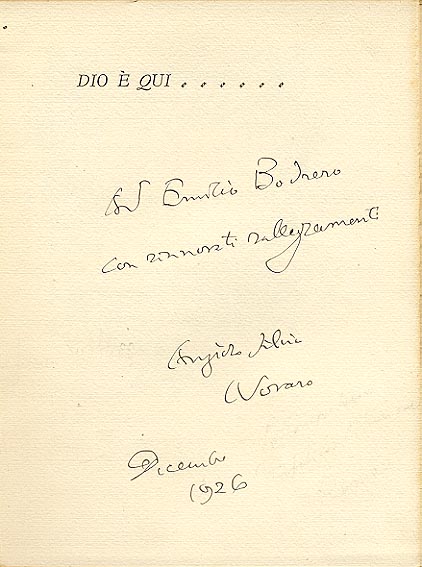 DIO È QUI . . . . . .
Ad Emilio Bodrero
con rinnovati rallegramenti
Angiolo Silvio
Novaro
Dicembre
1926